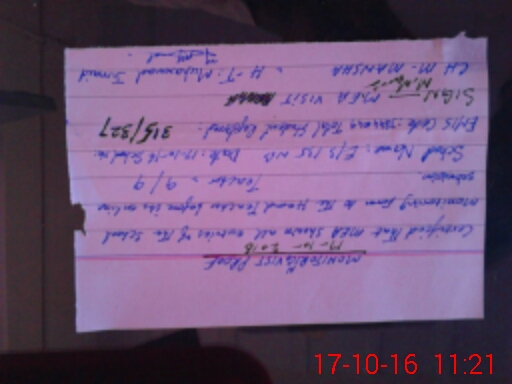 MONITORING VISIT PROOF
17-10-2016
Certified that MEA shown all entries of the School
monitoring form to the Head Teacher before its online
submission.
Teacher = 9/9
School Name: E/S 135 Date: 17-10-16
EMIS Code Total Student Enrolment: 315/327
SIGN MEA VISIT
CH M. MANSHA H-T: Muhammad
17-10-16 11:21